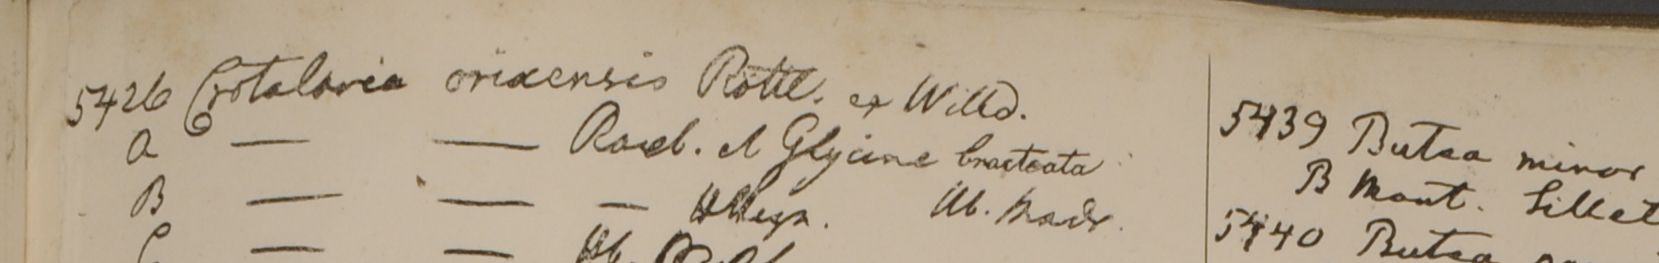 5426 Crotalaria orixensis Rottl. ex Willd.
a — — Roxb. et Glycine bracteata
B — — — HHeyn. Hb. Madr.
C — — Hb.
5439 Butea minor
B Mont. Sillet
5440 Butea